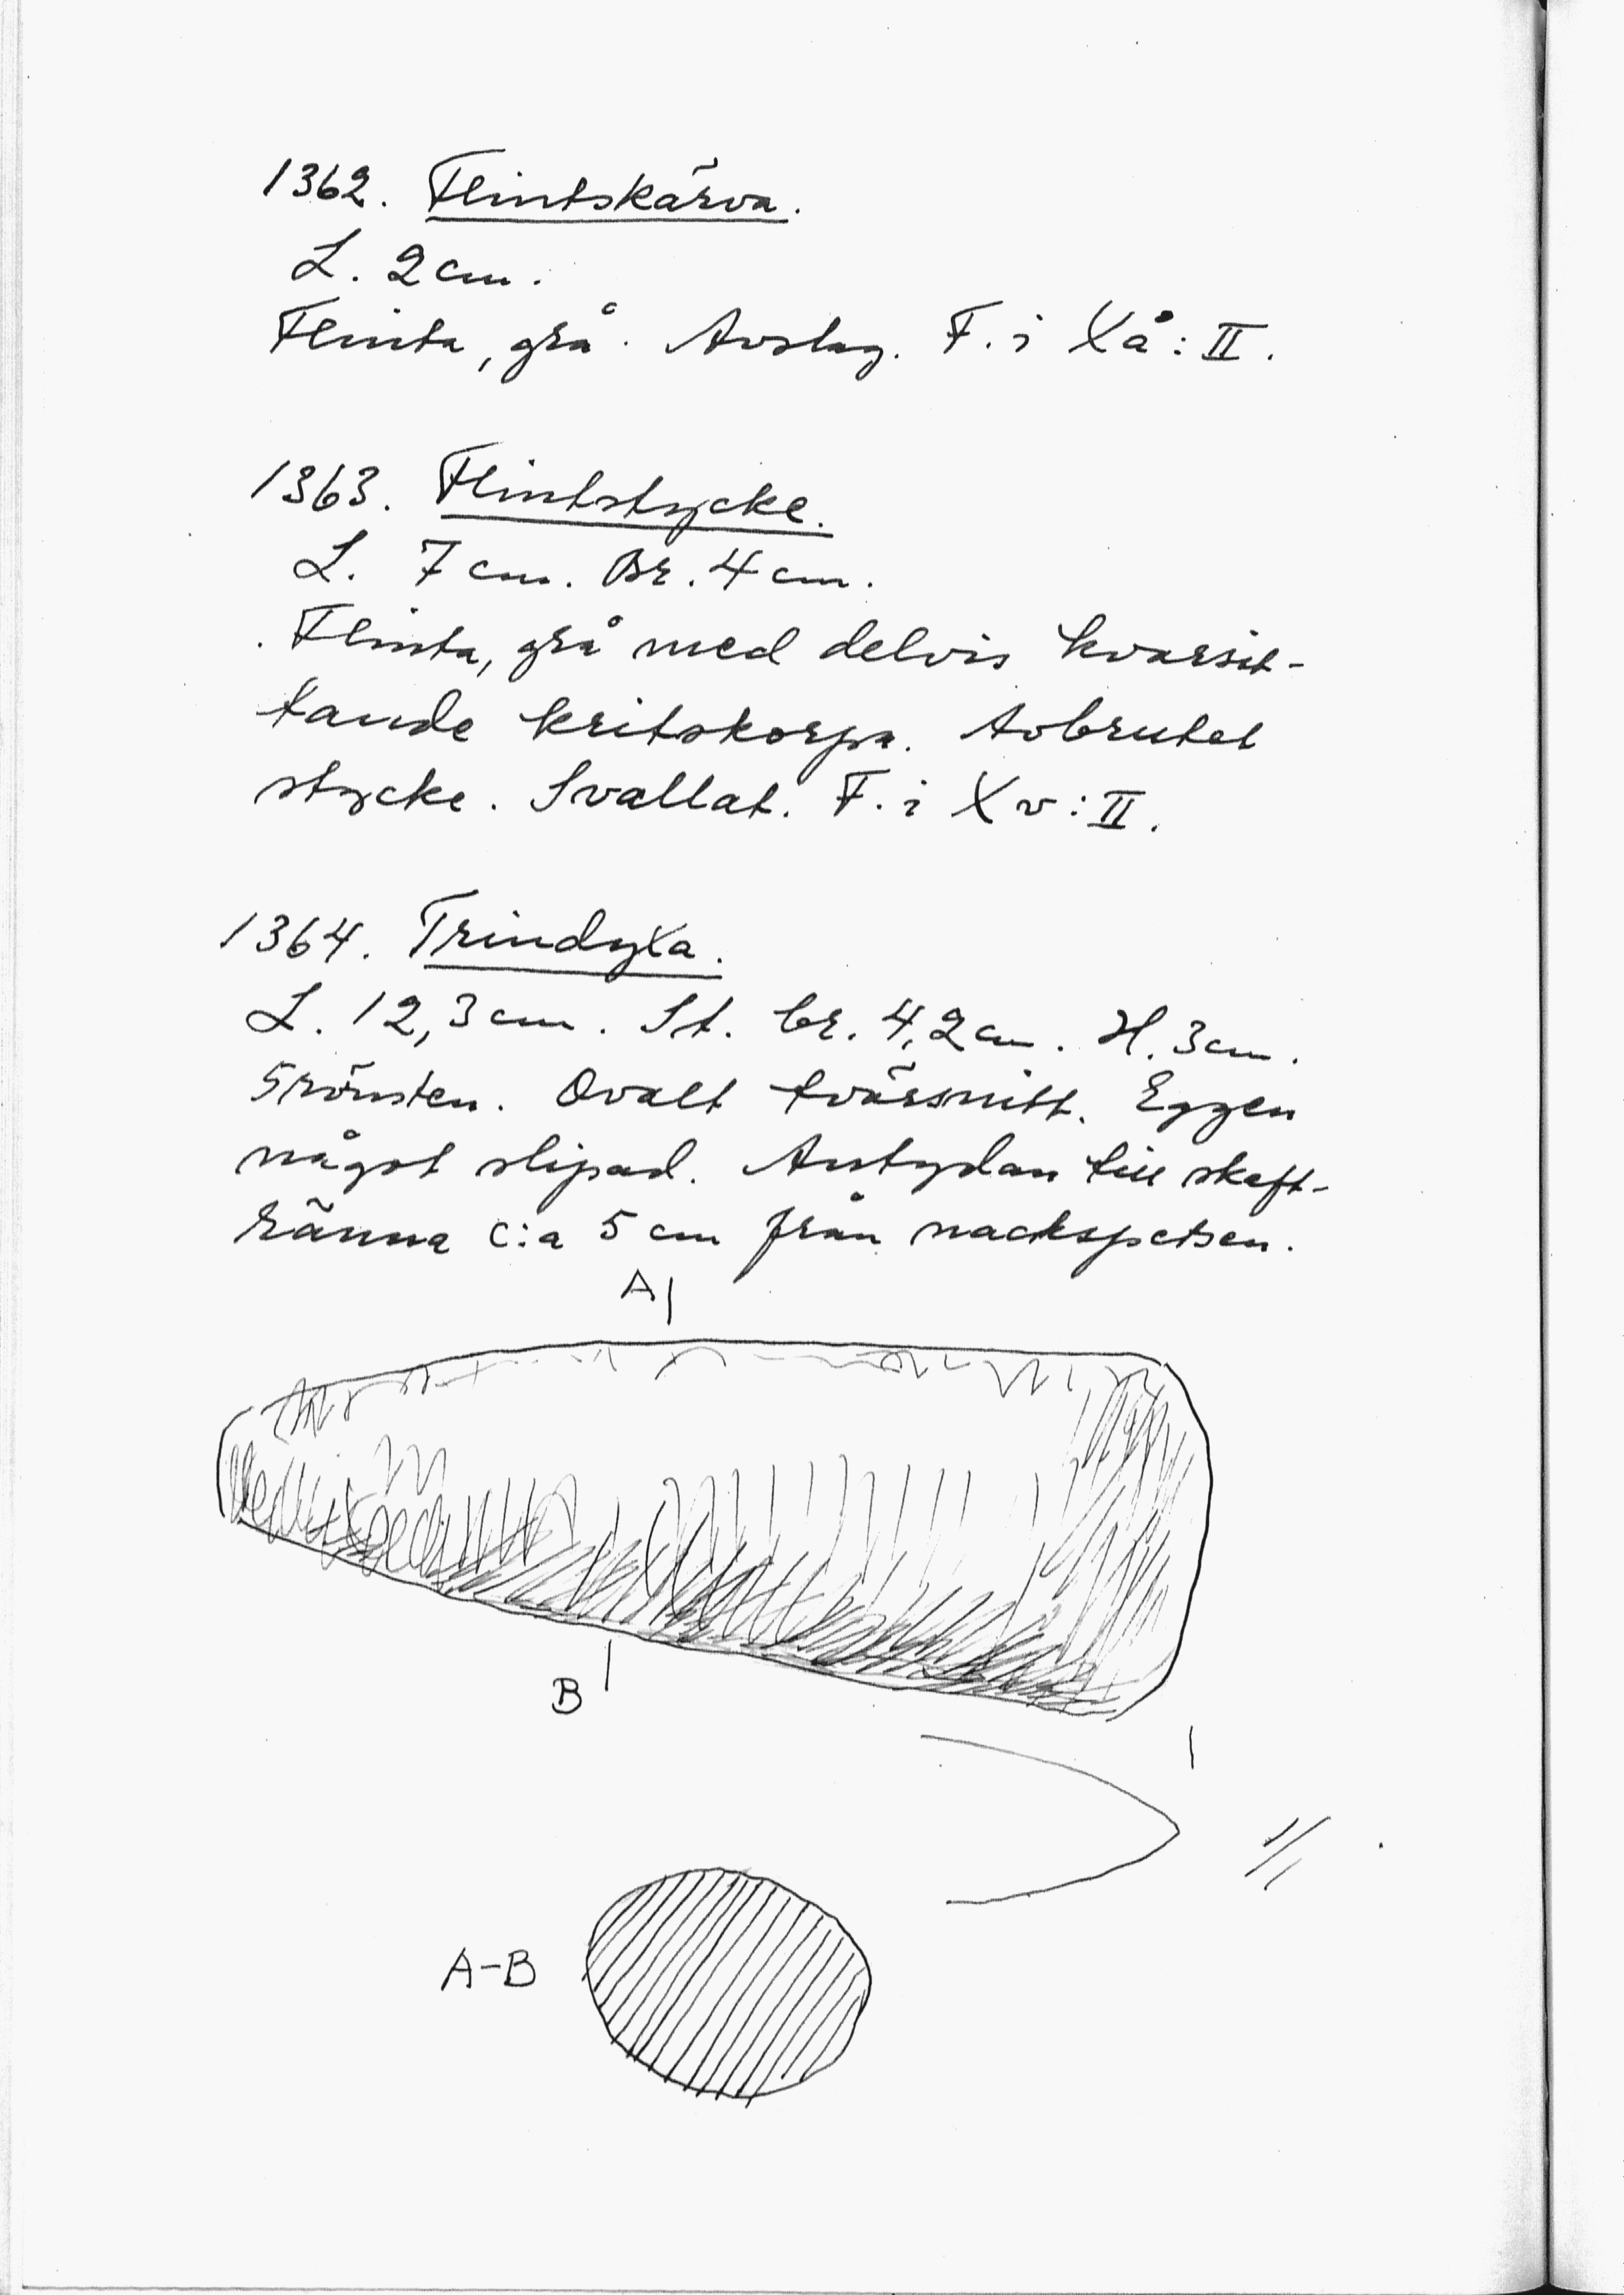 1362. Flintskärva.
L. 2 cm.
Flinta, grå. Avslag. F. i Xå:II.
1363. Flintstycke.
L. 7 cm. Br. 4 cm.
Flinta, grå med delvis kvarsit-
tande kritskorpa. Avbrutet
stycke. Svallat. F. i Xv:II.
1364. Trindyxa.
L. 12,3 cm. St. br. 4,2 cm. H. 3 cm.
Grönsten. Ovalt tvärsnitt. Eggen
något slipad. Antydan till skaft-
ränna c:a 5 cm från nackspetsen.
A
B
1/1
A-B